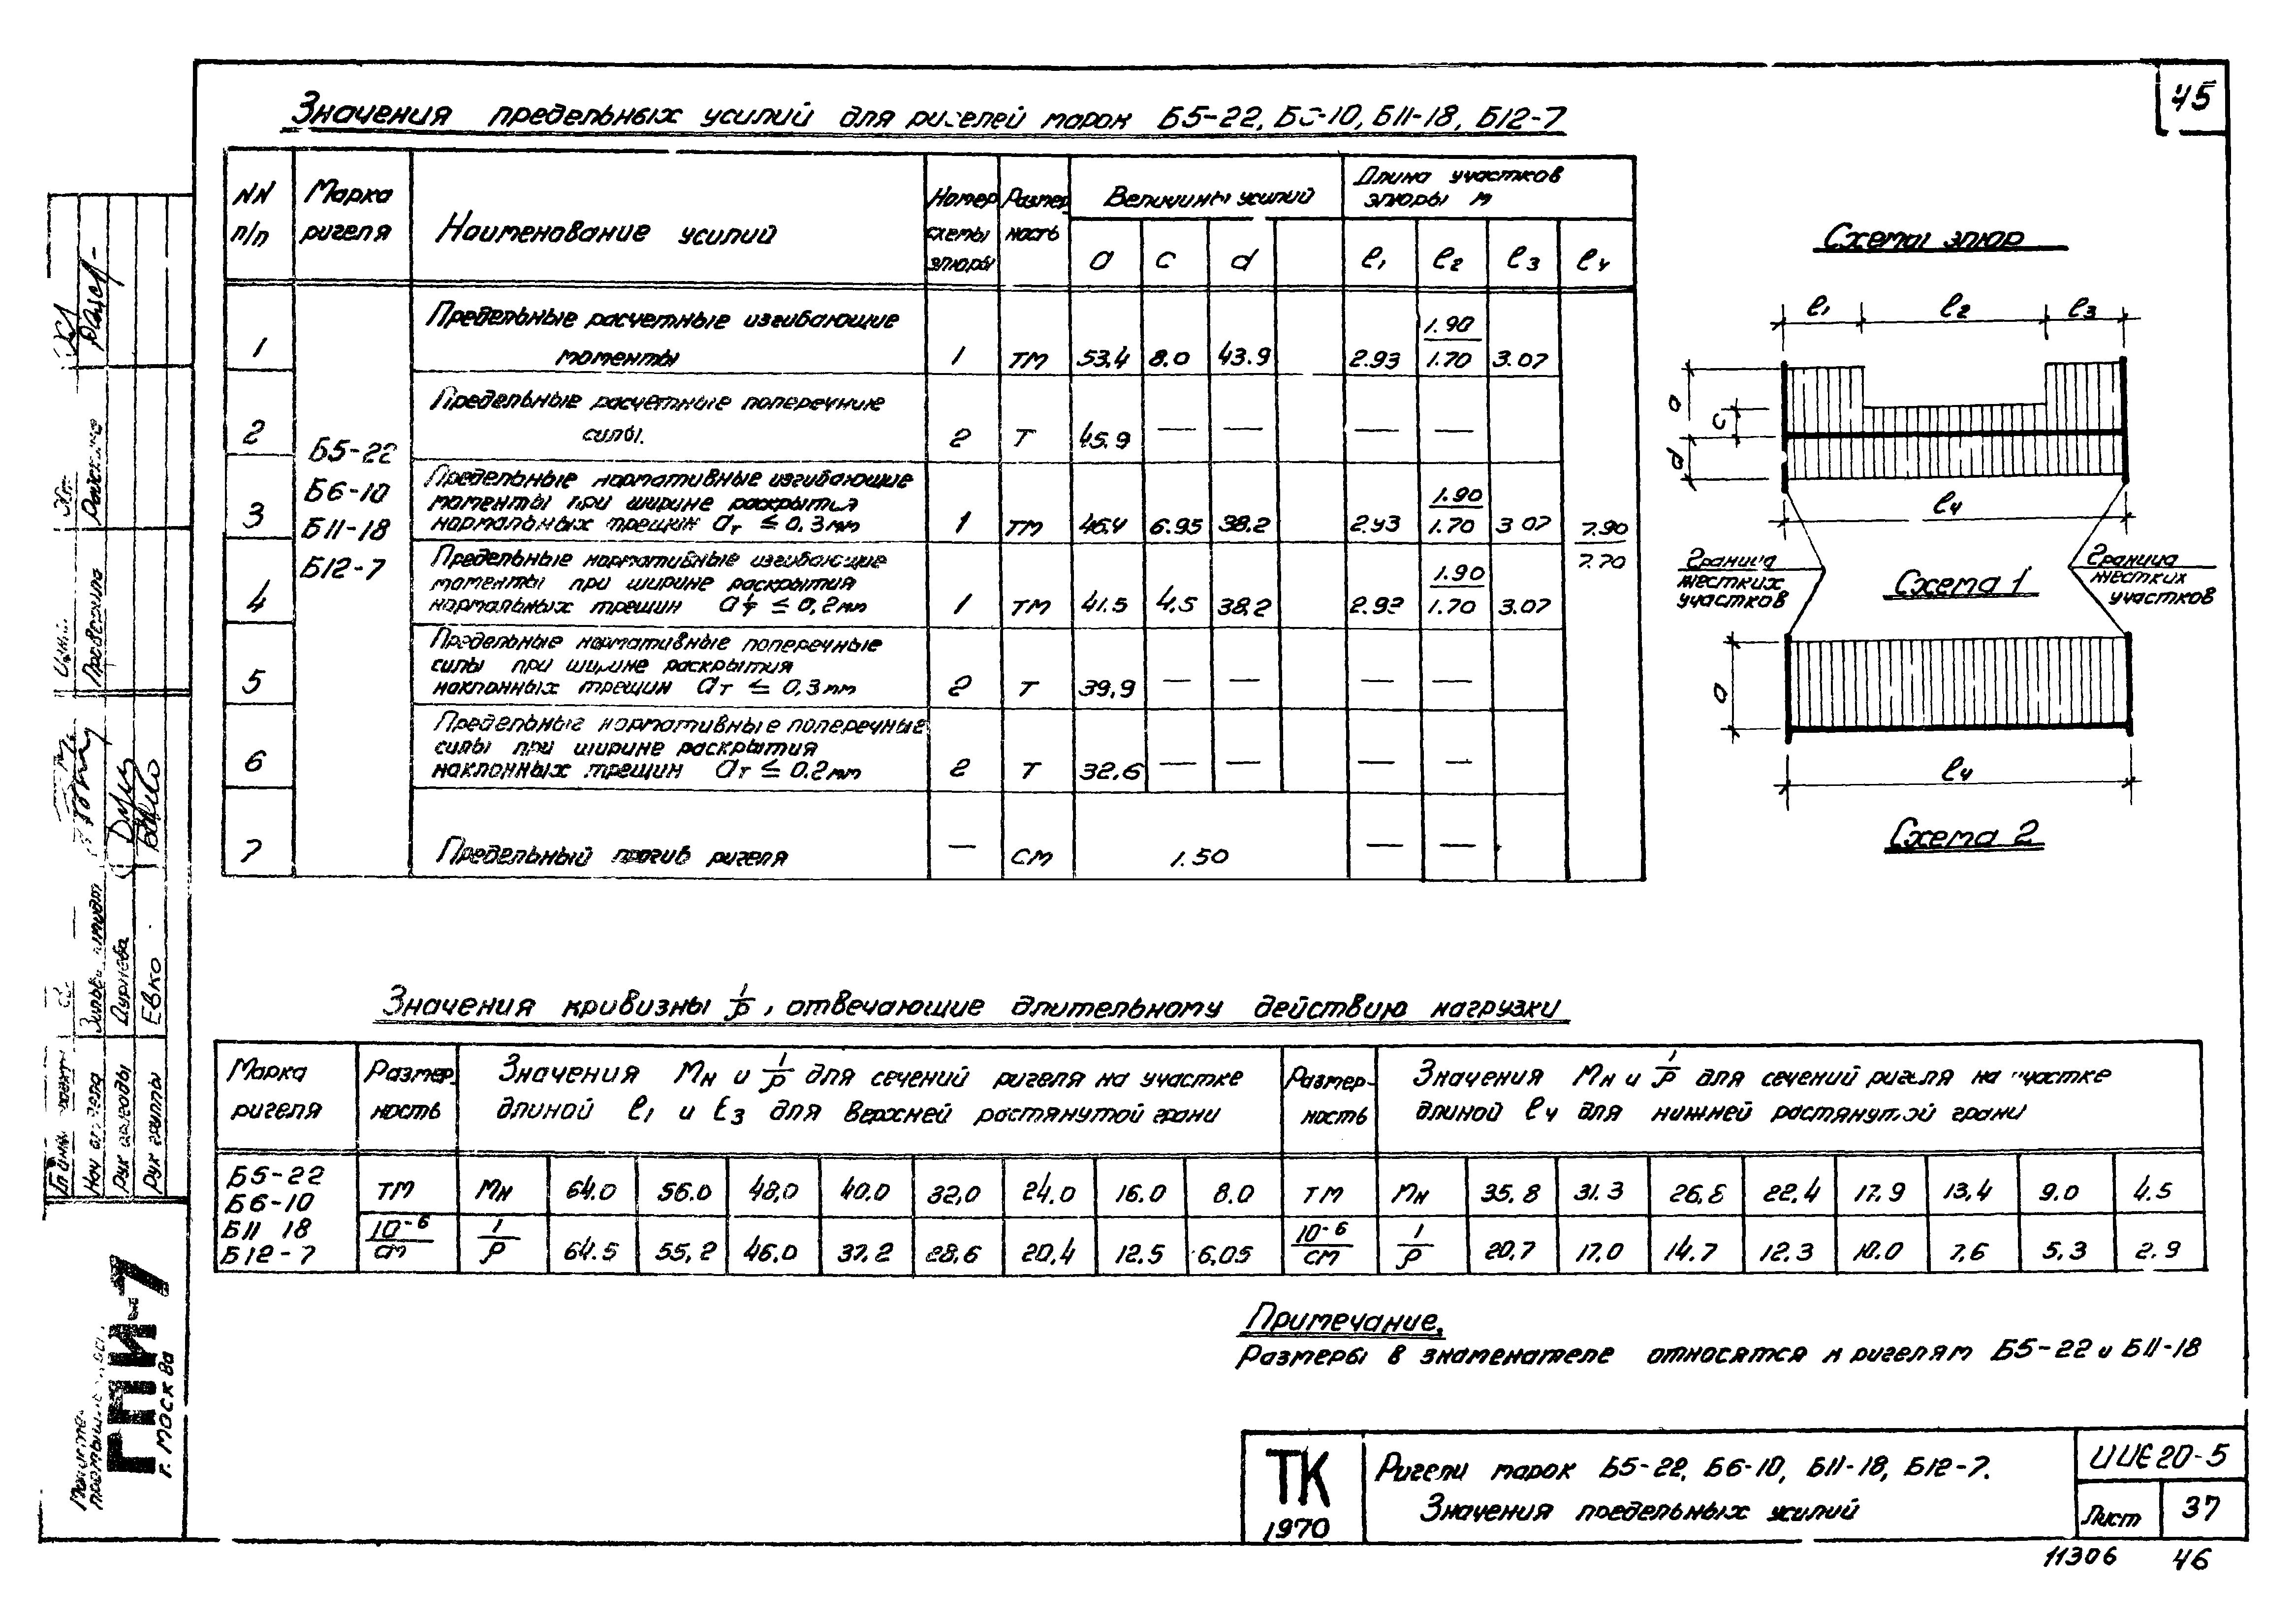 45
Значения предельных усилий для ригелей марок Б5-22, Б6-10, Б11-18, Б12-7
NN п/п
Марка ригеля
Наименование усилий
Номер схемы эпюры
Размерность
Величины усилий
Длина участков эпюры м
a c d l1 l2 l3 l4
1 Предельные расчетные изгибающие моменты 1 тм 53,4 8.0 43.9 2.93 1.90/1.70 3.07
2 Предельные расчетные поперечные силы. 2 т 45.9 — — — —
Б5-22
Б6-10
Б11-18
Б12-7
3 Предельные нормативные изгибающие
моменты при ширине раскрытия
нормальных трещин aт ≤ 0,3мм 1 тм 46.4 6.95 38.2 2.93 1.90/1.70 3.07 7.90/7.70
4 Предельные нормативные изгибающие
моменты при ширине раскрытия
нормальных трещин aт ≤ 0,2мм 1 тм 41.5 4.5 38.2 2.93 1.90/1.70 3.07
5 Предельные нормативные поперечные
силы при ширине раскрытия
наклонных трещин aт ≤ 0,3мм 2 т 39,9 — — — —
6 Предельные нормативные поперечные
силы при ширине раскрытия
наклонных трещин aт ≤ 0.2мм 2 т 32.6 — — — —
7 Предельный прогиб ригеля — см 1.50 — —
Схемы эпюр
l1 l2 l3
a
c
d
l4
Граница
жестких
участков
Схема 1
Граница
жестких
участков
a
l4
Схема 2
Значения кривизны 1/ρ, отвечающие длительному действию нагрузки
Марка ригеля
Размерность
Значения Mн и 1/ρ для сечений ригеля на участке
длиной l1 и l3 для верхней растянутой грани
Размерность
Значения Mн и 1/ρ для сечений ригеля на участке
длиной l4 для нижней растянутой грани
Б5-22
Б6-10
Б11 18
Б12-7
тм Mн 64.0 56.0 48,0 40.0 32,0 24.0 16.0 8.0 тм Mн 35.8 31.3 26,8 22,4 17.9 13,4 9.0 4.5
10-6/см 1/ρ 64.5 55,2 46.0 37.2 28,6 20,4 12.5 6,05 10-6/см 1/ρ 20,7 17.0 14.7 12.3 10.0 7,6 5,3 2.9
Примечание.
Размеры в знаменателе относятся к ригелям Б5-22 и Б11-18
ТК
1970
Ригели марок Б5-22, Б6-10, Б11-18, Б12-7.
Значения предельных усилий
ИИЕ20-5
Лист 37
11306 46
Рук группы Евко
Дурнева
Проверила
ГПИ-1
г. Москва